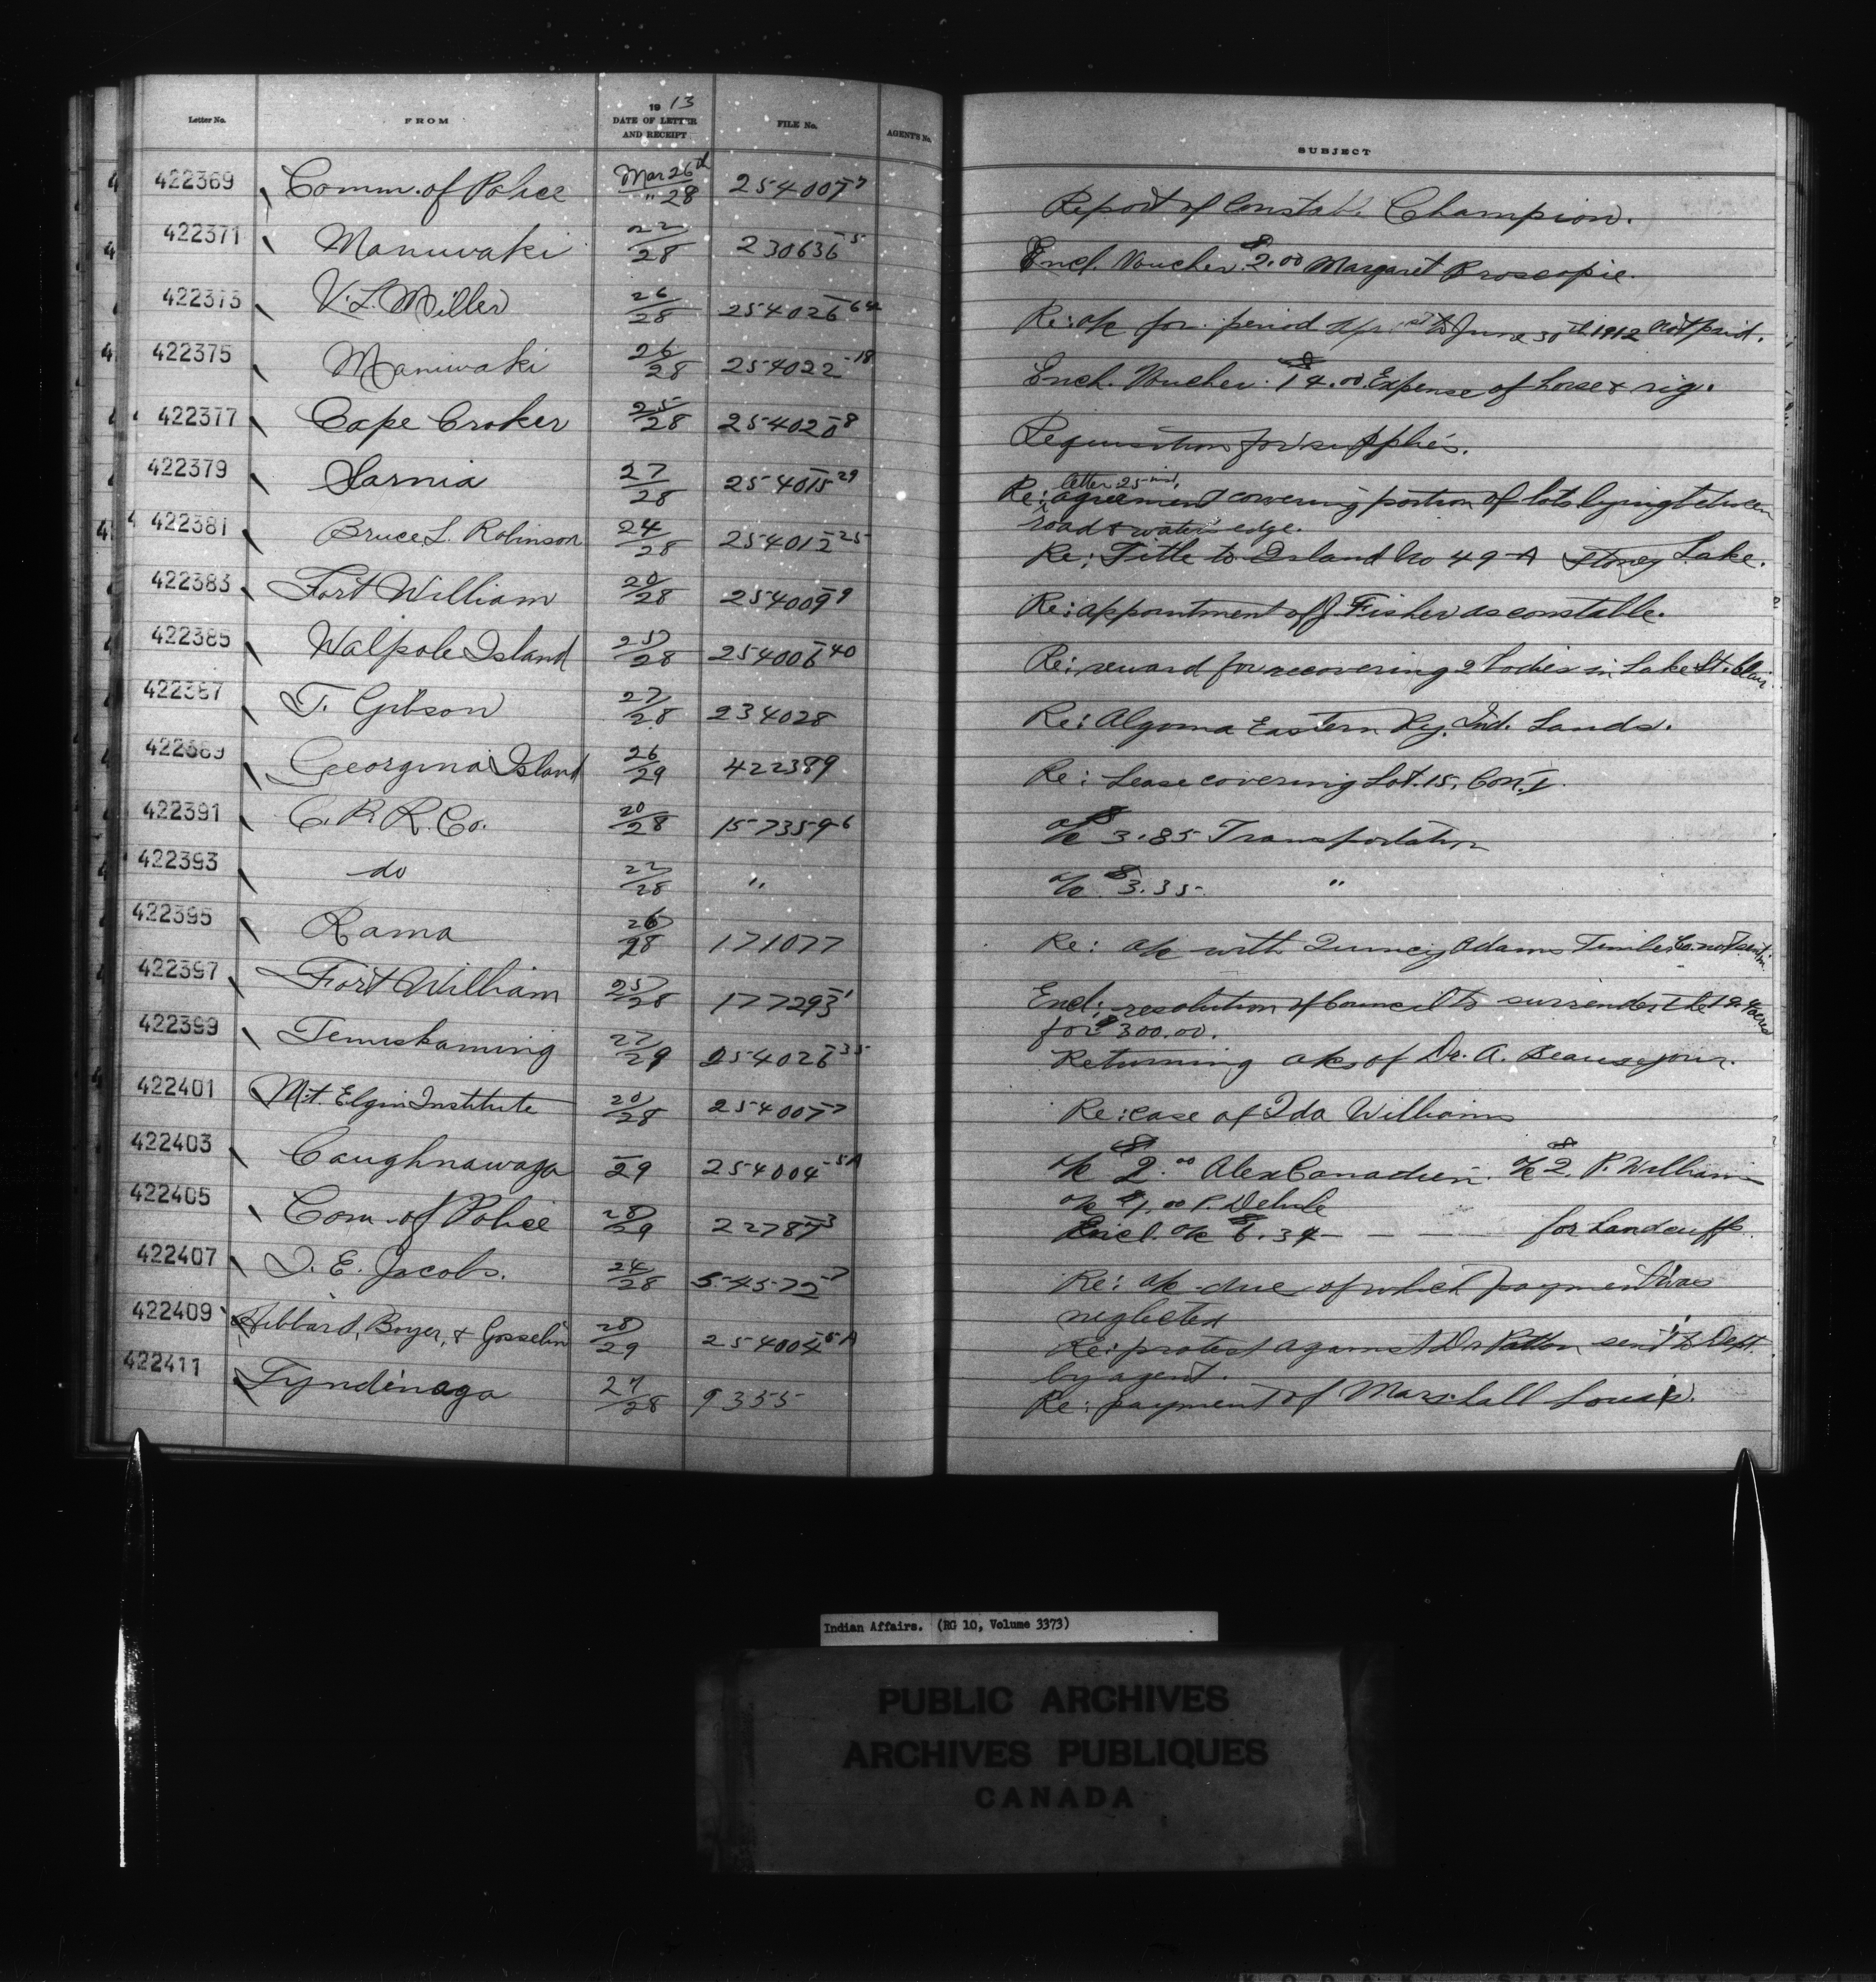 Letter No. FROM 1913 DATE OF LETTER AND RECEIPT FILE No. AGENT'S No. SUBJECT
422369 Comm. of Police Mar 26th / " 28 254007-7 Report of Constable Champion.
422371 Maniwaki 22/28 230636-5 Encl. Voucher $2.00 Margaret
422373 V. L. Miller 26/28 254026-64 Re: a/c for period Apr 1st to June 30th 1912 not paid.
422375 Maniwaki 26/28 254022-18 Encl. Voucher $14.00 Expense of horse & rig.
422377 Cape Croker 25/28 254020-8 Requisition for supplies.
422379 Sarnia 27/28 254015-29 Re: letter 25 inst, agreement covering portion of lots lying between
road & water's edge.
422381 Bruce L. Robinson 24/28 254012-25 Re: Title to Island No 49-A Stoney Lake.
422383 Fort William 20/28 254009-9 Re: appointment of J. Fisher as constable.
422385 Walpole Island 25/28 254006-40 Re: reward for recovering 2 bodies in Lake St. Clair.
422387 T. Gibson 27/28 234028 Re: Algoma Eastern Ry. Ind. Lands.
422389 Georgina Island 26/29 422389 Re: Lease covering Lot. 15, Con. I.
422391 C. P. R. Co. 20/28 157359-6 a/c $3.85 Transportation
422393 do 22/28 " a/c $3.35 "
422395 Rama 26/28 171077 Re: a/c with Quincy Adams Timber Co. not sent in.
422397 Fort William 25/28 177293-1 Encl: resolution of Council to surrender the acres
for $300.00.
422399 Temiskaming 27/29 254026-35 Returning a/cs of Dr. A. Beausejour.
422401 Mt. Elgin Institute 20/28 254007-7 Re: case of Ida Williams
422403 Caughnawaga -/29 254004-5A a/c $2.00 Alex Canadien. a/c $2. P. Williams
a/c $1.00 P. Delisle
422405 Com. of Police 28/29 22787-3 Encl. a/c $6.34 - - - for handcuffs.
422407 I. E. Jacobs. 24/28 54572-7 Re: a/c due of which payment was
neglected
422409 Hibbard, Boyer, & Gosselin 28/29 254004-5A Re: protest against Dr Patton sent to Dept.
by agent.
422411 Tyndinaga 27/28 9355 Re: payment of Marshall Louis.
Indian Affairs. (RG 10, Volume 3373)
PUBLIC ARCHIVES
ARCHIVES PUBLIQUES
CANADA